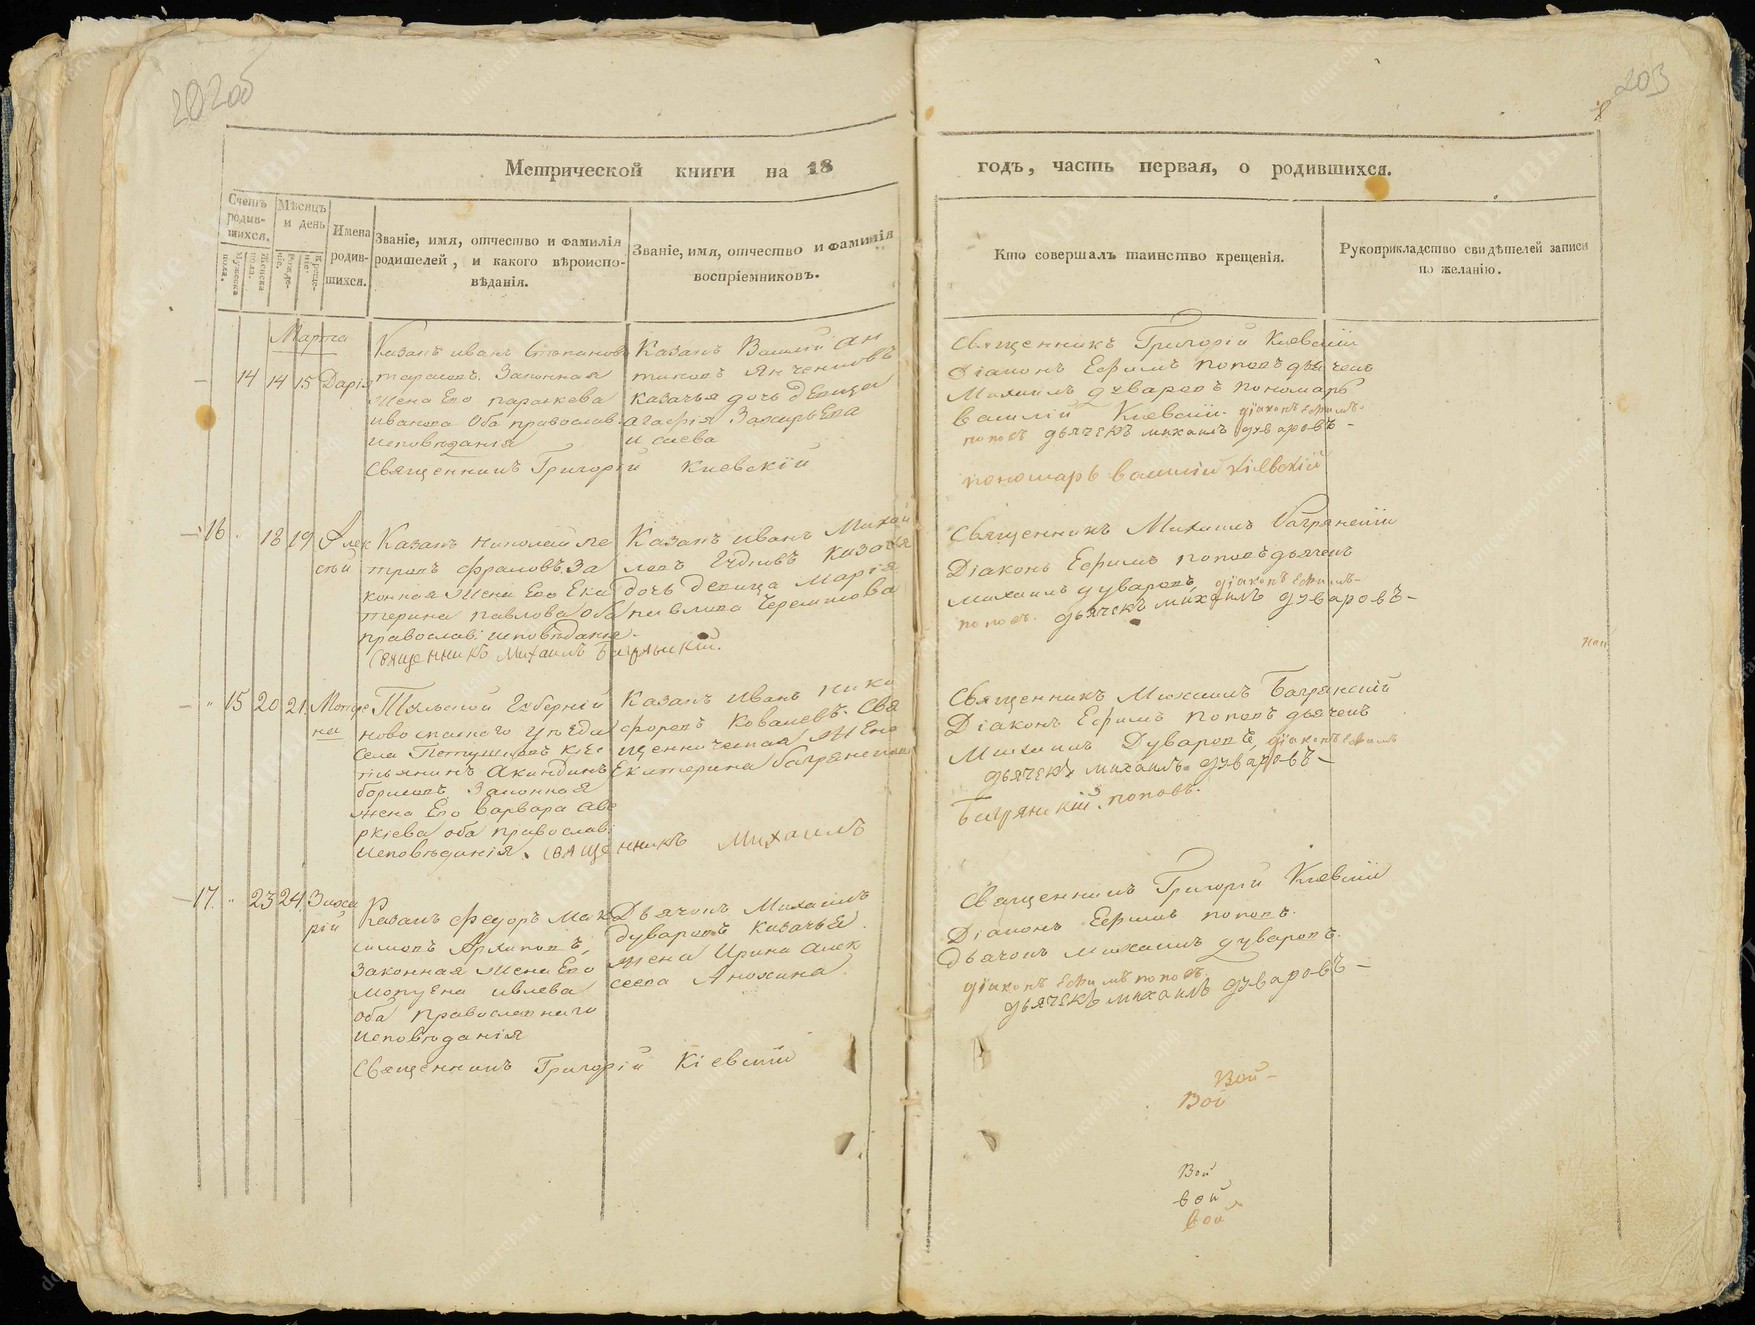 202об
203
8
Метрической книги на 18
годъ, часть первая, о родившихся.
Счетъ родив-шихся.
Мѣсяцъ и день
Имена родив-шихся.
Званіе, имя, отчество и фамилія родителей, и какого вѣроиспо-вѣданія.
Званіе, имя, отчество и фамилія воспріемниковъ.
Кто совершалъ таинство крещенія.
Рукоприкладство свидѣтелей записи по желанію.
Мужеска пола.
Женска пола.
Рожде-ніе.
Креще-ніе.
Марта
14 14 15 Дарія
Казакъ иванъ
тарасовъ. Законная
жена Его параскева
иванова Оба православ.
исповѣданія
Казакъ Василій Ан
типовъ
казачья дочь дѣвица
агафія Захарьева
исаева
Священникъ Григорій Киевскій
Священникъ Григорій Киевскій
Діаконъ Ефимъ поповъ дьячекъ
Михаилъ дуваровъ пономарь
василій Киевскій. діаконъ ефимъ
поповъ дьячекъ михаилъ дуваровъ
пономарь василій кіевскій
16 18 19 Алек
сѣй
Казакъ николай пе
тровъ фроловъ. За
конная жена Его Ека
терина павлова оба
православ: исповѣданія
Казакъ иванъ Михай
ловъ казачья
дочь дѣвица Марія
павлова
Священникъ Михаилъ Багрянскій.
Священникъ Михаилъ Багрянскій
Діаконъ Ефимъ поповъ дьячекъ
михаилъ дуваровъ, діаконъ ефимъ
поповъ. дьячекъ михаилъ дуваровъ
15 20 21 Матре
на
Тульской Губерніи
новосильского уѣзда
Села
стьянинъ Акиндинъ
борисовъ Законная
жена Его варвара аве
ркіева оба православ:
исповѣданія. Священникъ Михаилъ
Казакъ Иванъ ники
форовъ Ковалевъ. Свя
щенническая жена
Екатерина багрянская
Священникъ Михаилъ Багрянскій
Діаконъ Ефимъ поповъ дьячекъ
Михаилъ Дуваровъ, діаконъ ефимъ
дьячекъ михаилъ дуваровъ
Багрянскій. поповъ.
17 23 24 Заха
рій
Казакъ федоръ Мак
симовъ Архиповъ,
Законная жена Его
матрена ивлева
оба православнаго
исповѣданія
Дьячокъ Михаилъ
дуваровъ казачья
жена Ирина алек
сеева Анохина
Священникъ Григорій Кіевскій
Священникъ Григорій Киевскій
Діаконъ Ефимъ поповъ.
дьячокъ михаилъ дуваровъ.
діаконъ ефимъ поповъ.
дьячекъ михаилъ дуваровъ
Вой
Вой
Вой
вой
вой